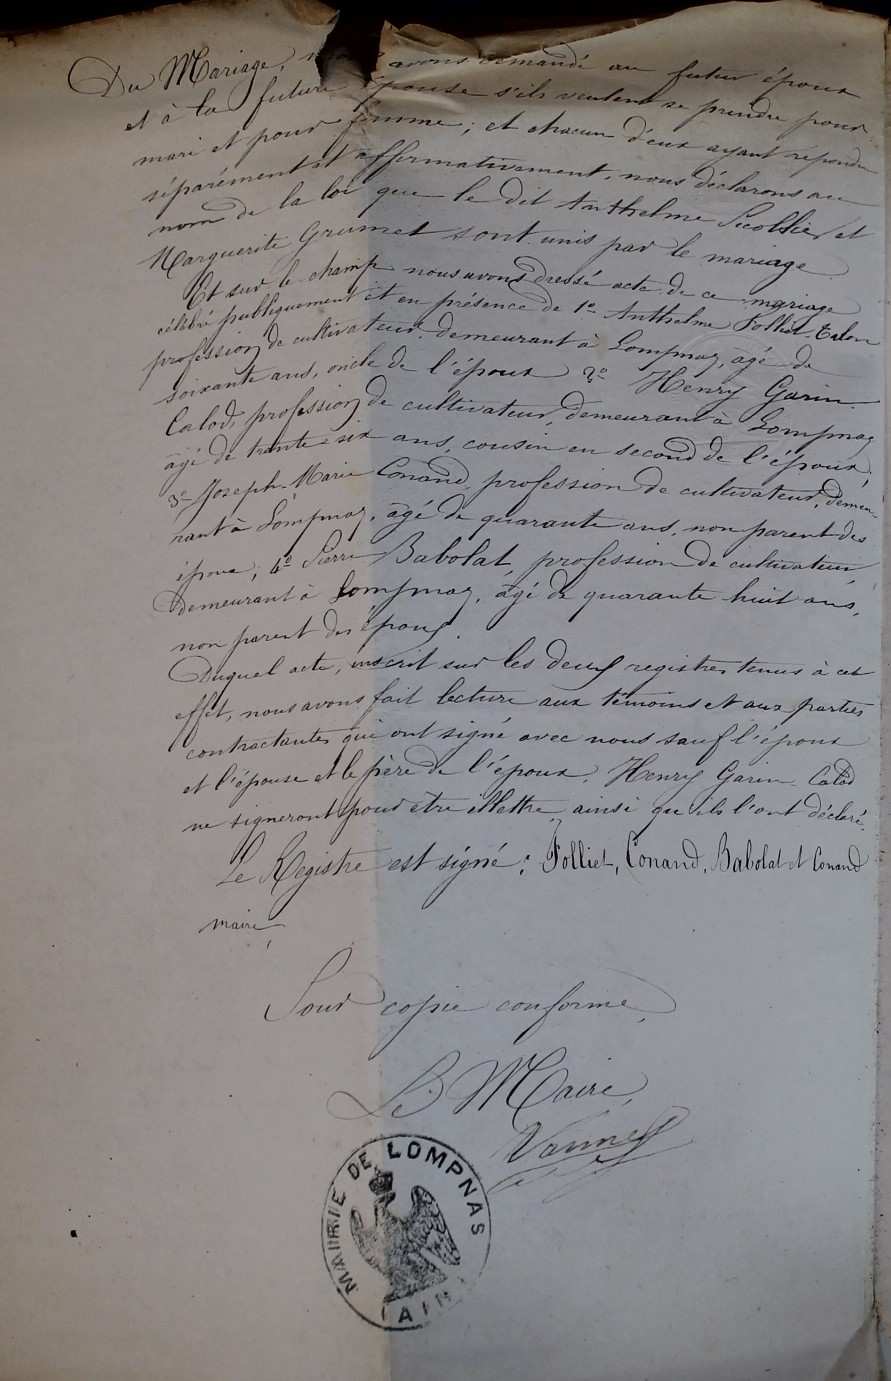 Du Mariage, avons demandé au futur époux
et à la future épouse s'ils veulent se prendre pour
mari et pour femme; et chacun d'eux ayant répondu
séparément et affermativement, nous déclarons au
nom de la loi que le dit Anthelme et
Marguerite Grumet sont unis par le mariage
Et sur le champ nous avons dressé acte de ce mariage
célébré publiquement et en présence de 1º Anthelme Folliet-
profession de cultivateur, demeurant à Lompnaz, âgé de
soixante ans, oncle de l'époux 2º Henry Garin
Calod, profession de cultivateur, demeurant à Lompnaz
âgé de trente-six ans, cousin en second de l'époux,
3º Joseph-Marie Conand, profession de cultivateur, demeu-
rant à Lompnaz, âgé de quarante ans, non parent des
époux; 4º Pierre Babolat, profession de cultivateur
demeurant à Lompnaz, âgé de quarante huit ans,
non parent des époux.
Duquel acte, inscrit sur les deux registres tenus à cet
effet, nous avons fait lecture aux témoins et aux parties
contractantes qui ont signé avec nous sauf l'époux
et l'épouse et le père de l'époux, Henry Garin-Calod
ne signeront pour être illettre, ainsi qu'ils l'ont déclaré.
Le Registre est signé: Folliet, Conand, Babolat et Conand
maire,
Pour copie conforme,
Le Maire,
MAIRIE DE LOMPNAS
(AIN)